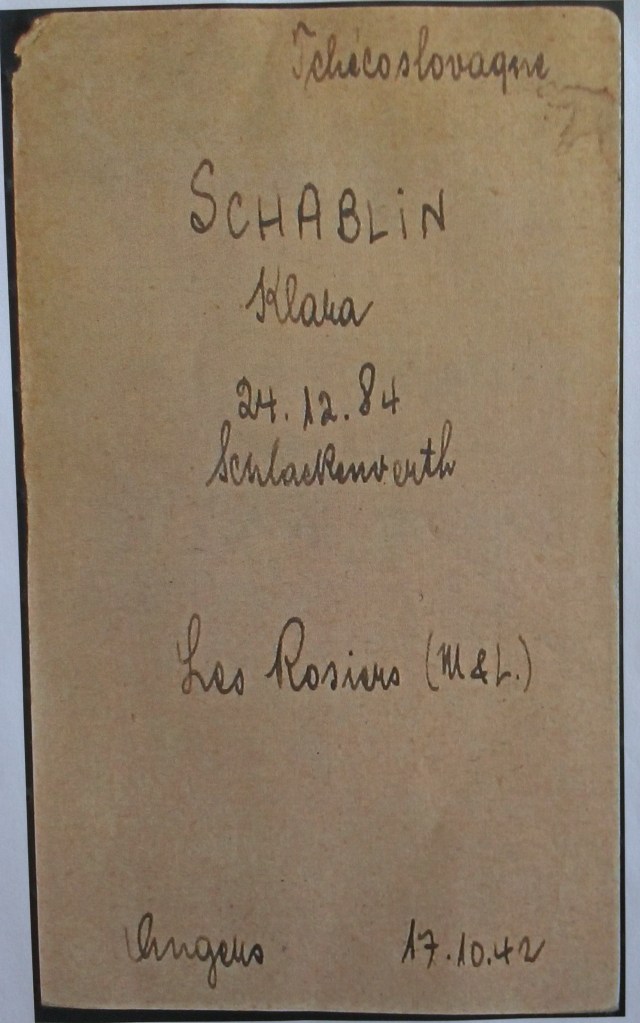 Tchécoslovaque
SCHABLiN
Klara
24.12.84
Schlackenwerth
Les Rosiers (M & L.)
Angers 17.10.42